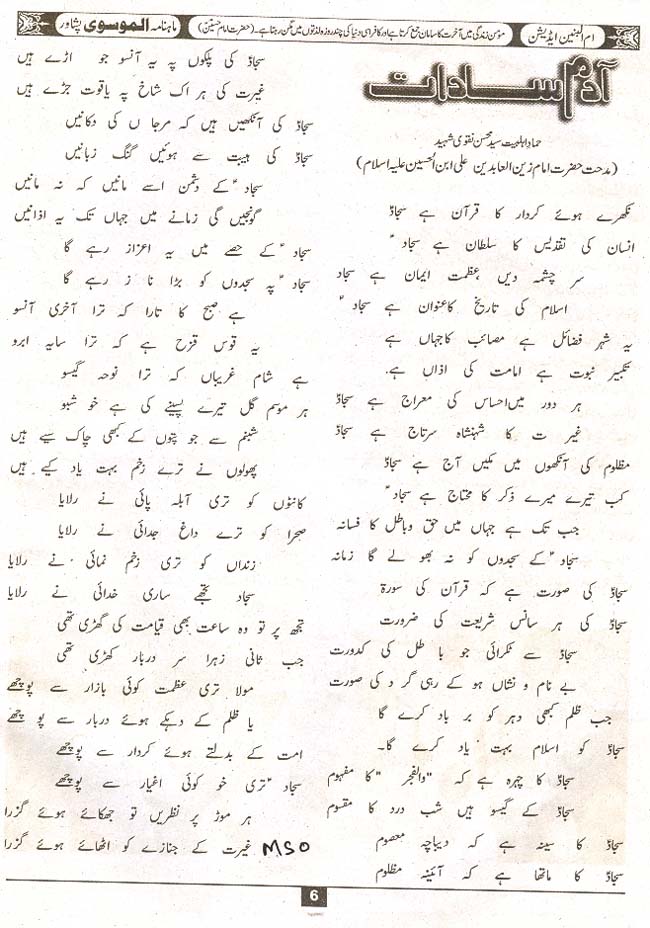 ام البنین ایڈیشن
مؤمن زندگی میں آخرت کا سامان جمع کرتا ہے اور کافر اسی دنیا کی چند روزہ لذتوں میں مگن رہتا ہے۔ (حضرت امام حسینؑ)
ماہنامہ الموسوی پشاور
آدمِ سادات
حماد اہلبیت سید محسن نقوی شہید
(مدحت حضرت امام زین العابدین علی ابن الحسین علیہ اسلام)
نکھرے ہوئے کردار کا قرآن ہے سجادؑ
انسان کی تقدیس کا سلطان ہے سجادؑ
سر چشمہ دیں عظمت ایمان ہے سجاد
اسلام کی تاریخ کا عنوان ہے سجادؑ
یہ شہر فضائل ہے مصائب کا جہاں ہے
تکبیر نبوت ہے امامت کی اذاں ہے.
ہر دور میں احساس کی معراج ہے سجادؑ
غیر ت کا شہنشاہ سرتاج ہے سجادؑ
مظلوم کی آنکھوں میں مکیں آج ہے سجادؑ
کب تیرے میرے ذکر کا محتاج ہے سجادؑ
جب تک ہے جہاں میں حق وباطل کا فسانہ
سجادؑ کے سجدوں کو نہ بھو لے گا زمانہ
سجادؑ کی صورت ہے کہ قرآن کی سورۃ
سجادؑ کی ہر سانس شریعت کی ضرورت
سجادؑ سے ٹکرائی جو با طل کی کدورت
بے نام و نشاں ہو کے رہی گر د کی صورت
جب ظلم کبھی دہر کو بر باد کرے گا
سجادؑ کو اسلام بہت یاد کرے گا۔
سجادؑ کا چہرہ ہے کہ "والفجر" کا مفہوم
سجادؑ کے گیسو ہیں شب درد کا مقسوم
سجادؑ کا سینہ ہے کہ دیباچہ معصوم
سجادؑ کا ماتھا ہے کہ آئینہ مظلوم
سجادؑ کی پلکوں پہ یہ آنسو جو اڑے ہیں
غیرت کی ہر اک شاخ پہ یاقوت جڑے ہیں
سجادؑ کی آنکھیں ہیں کہ مرجا ں کی دکانیں
سجادؑ کی ہیبت سے ہوئیں گنگ زبانیں
سجادؑ کے دشمن اسے مانیں کہ نہ مانیں
گونجیں گی زمانے میں جہاں تک یہ اذانیں
سجادؑ کے حصے میں یہ اعزاز رہے گا
سجادؑ پہ سجدوں کو بڑا نا ز رہے گا
ہے صبح کا تارا کہ ترا آخری آنسو
یہ قوس قزح ہے کہ ترا سایہ ابرو
ہے شام غریباں کہ ترا نوحہ گیسو
ہر موسم گل تیرے پسینے کی ہے خو شبو
شبنم سے جو پتوں کے کبھی چاک سیے ہیں
پھولوں نے ترے زخم بہت یاد کیے ہیں
کانٹوں کو تری آبلہ پائی نے رلایا
صحرا کو ترے داغ جدائی نے رلایا
زنداں کو تری زخم نمائی نے رلایا
سجاد تجھے ساری خدائی نے رلایا
تجھ پر تو وہ ساعت بھی قیامت کی گھڑی تھی
جب ثانی زہرا سر دربار کھڑی تھی
مولا تری عظمت کوئی بازار سے پوچھے
یا ظلم کے دہکے ہوئے دربار سے پو چھے
امت کے بدلتے ہوئے کردار سے پوچھے
سجادؑ تری خو کوئی اغیار سے پوچھے
ہر موڑ پر نظریں تو جھکائے ہوئے گزرا
غیرت کے جنازے کو اٹھائے ہوئے گزرا
MSO
6